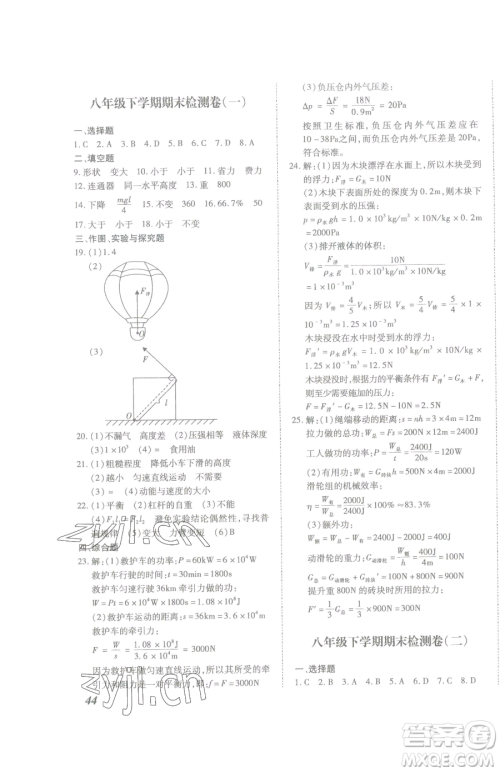 八年级下学期期末检测卷(一)
一、选择题
1. C 2. A 3. D 4. B 5. C 6. C 7. D 8. A
二、填空题
9. 形状 变大 10. 小于 小于 11. 省力 费力
12. 连通器 同一水平高度 13. 重 100
14. 下降 mgl/4 15. 不变 360 16. 66.7% 50
17. 大于 小于 18. 小于 不变
三、作图、实验与探究题
19. (1)1.4
(2)
F浮
O
G
(3)
F
l
O
20. (1)不漏气 高度差 (2)压强相等 液体深度
(3)1×10³ (4)= 食用油
21. (1)粗糙程度 降低小车下滑的高度
(2)越小 匀速直线运动 (3)不变
22. (1)平衡 (2)杠杆的自重 (3)力臂
(4)F₁l₁=F₂l₂ 避免实验结论偶然性,寻找普
遍规律 (5)变大 变大 (6)B
四、综合题
23. 解:(1)救护车的功率:P=60kW=6×10⁴W
救护车行驶的时间:t=30min=1800s
救护车匀速直线行驶 36km 牵引力做的功:
W=Pt=6×10⁴W×1800s=1.08×10⁸J
(2)救护车运动的距离:s=36km=3.6×10⁴m
救护车的牵引力:
F=W/s=1.08×10⁸J/3.6×10⁴m=3000N
因为救护车做匀速直线运动,所以救护车的牵引
力和阻力是一对平衡力,即:f=F=3000N
44
(3)负压仓内外气压差:
Δp=ΔF/S=18N/0.9m²=20Pa
按照卫生标准,负压仓内外气压差应在
10~38Pa之间,而此救护车内外气压差为20Pa,
符合标准。
24. 解:(1)因为木块漂浮在水面上,所以木块受到
的浮力:F浮=G木=10N
(2)木块下表面所处的深度为0.2m,受到的压强:
p=ρ水gh=1.0×10³kg/m³×10N/kg×0.2m
=2000Pa
(3)排开液体的体积:
V排=F浮/ρ水g=10N/1.0×10³kg/m³×10N/kg=
1×10⁻³m³
因为 V排=4/5V木,所以 V木=5/4V排=5/4×1×
10⁻³m³=1.25×10⁻³m³
木块没入水中时受到水的浮力:
F浮′=ρ水gV木=1.0×10³kg/m³×10N/kg×
1.25×10⁻³m³=12.5N
木块没入时,根据力的平衡条件有 F浮′=G木+F,
则至少需要施加的压力:
F=F浮′-G木=12.5N-10N=2.5N
25. 解:(1)绳端移动的距离:s=nh=3×4m=12m
拉力做的总功:W总=Fs=200N×12m=2400J
工人做功的功率:P=W总/t=2400J/20s=120W
(2)有用功:W有用=W总-W额=2400J-400J=2000J
滑轮组的机械效率:
η=W有用/W总=2000J/2400J×100%≈83.3%
动滑轮的重力:G动滑轮=W额/h=400J/4m=100N
(3)根据 F=1/3(G动滑轮+G砖块)得:
G总=G动滑轮+G砖块′=100N+800N=900N
提升重量 800N 的砖块时对绳的拉力:
F′=1/3G总=1/3×900N=300N
八年级下学期期末检测卷(二)
一、选择题
1. C 2. C 3. D 4. B 5. A 6. C 7. C 8. D
zyjl.cn
答案圈
MXQE.COM